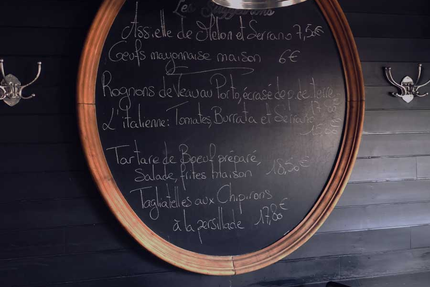 Les
Assiette de Melon et Serrano 7,5€
Oeufs mayonnaise maison 6€
Rognons de Veau au Porto, écrasé de p. de terre
L'italienne: Tomates, Burrata et Serrano
Tartare de Boeuf préparé,
Salade, frites maison 18,50€
Tagliatelles aux Chipirons
à la persillade 17,80€